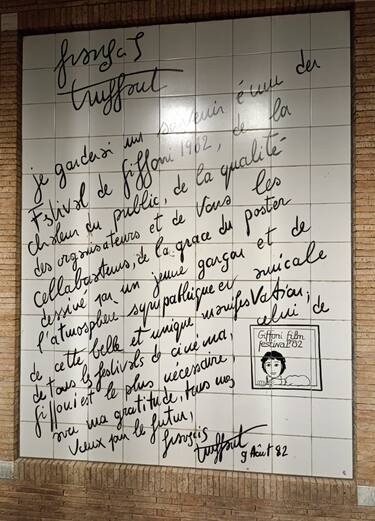 françois
truffaut
je garderai un souvenir ému du
Festival de Giffoni 1982, de la
chaleur du public, de la qualité
des organisateurs et de tous les
collaborateurs, de la grace du poster
dessiné par un jeune garçon et de
l'atmosphère sympathique et amicale
de cette belle et unique manifestation;
de tous les festivals de cinéma, celui de
Giffoni est le plus nécessaire,
avec ma gratitude, tous mes
Vœux pour le futur,
françois
truffaut
9 Août 82
Giffoni film
festival '82